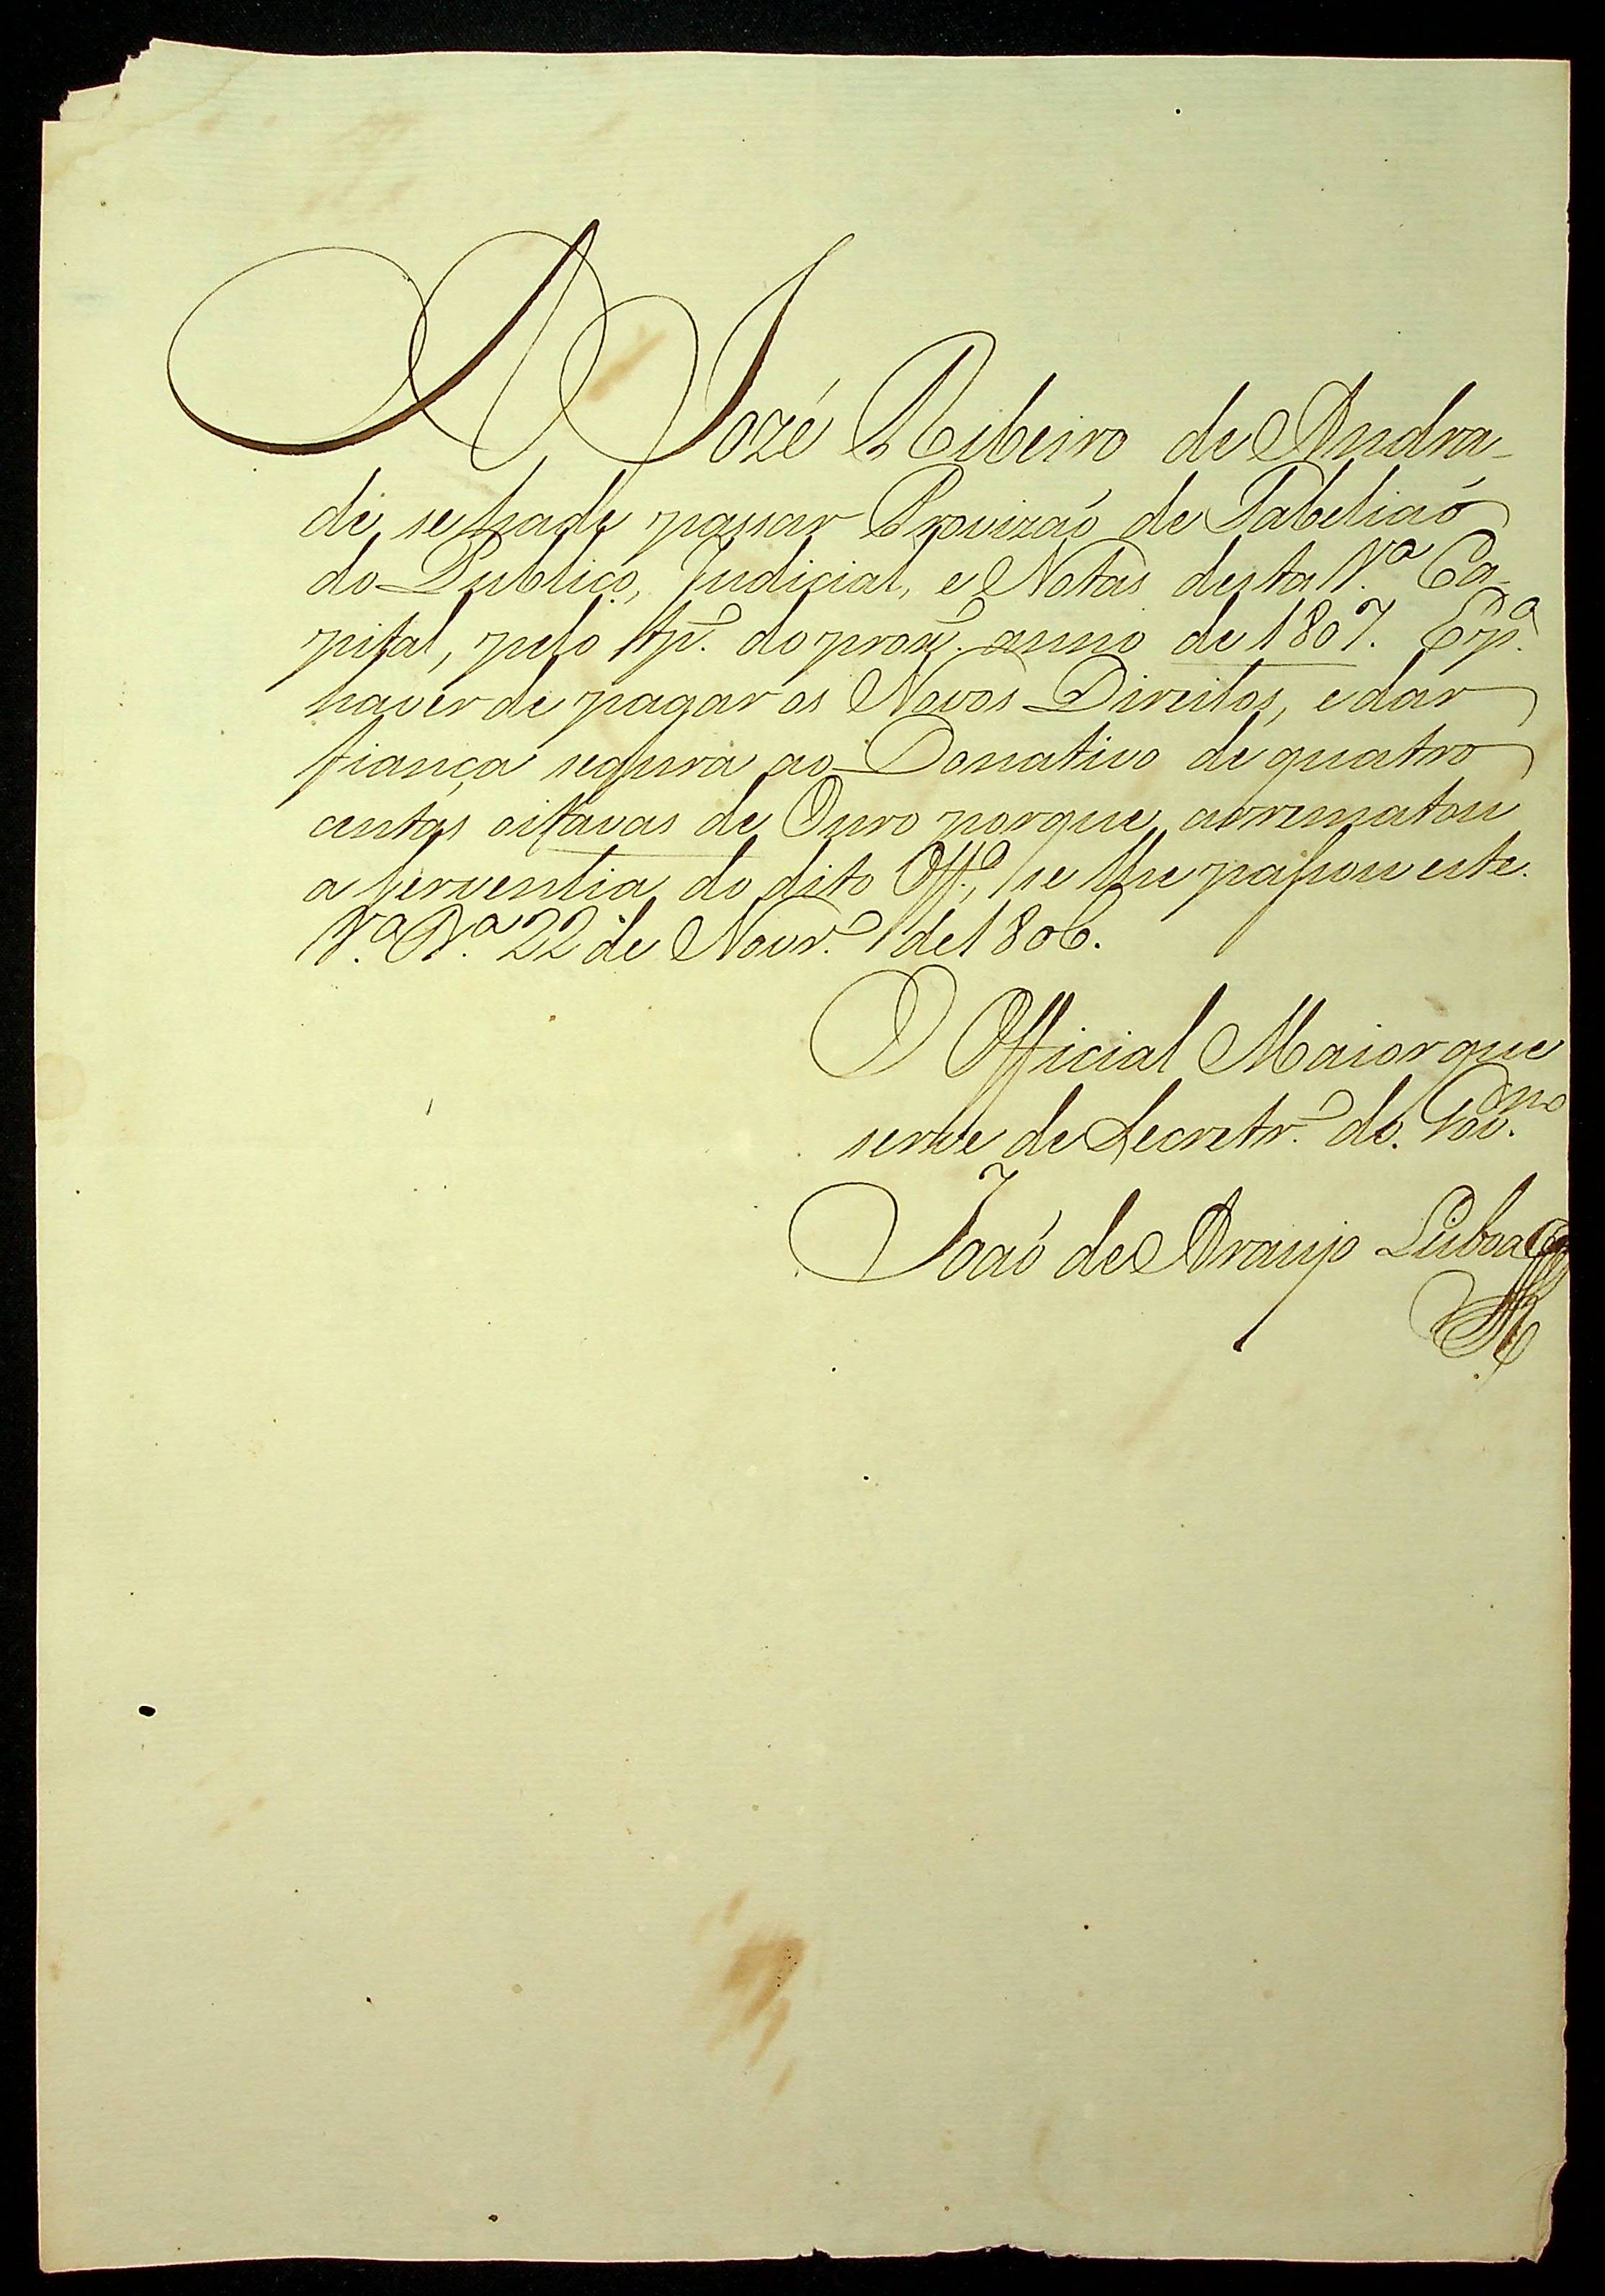 A Jozé Ribeiro de Andra-
de se hade passar Provizaó de Tabeliaó
do Publico, Judicial, e Notas desta V.ª Ca-
pital, pelo tp.º do prox.º anno de 1807. E p.ª
haver de pagar os Novos Direitos, e dar
fiança segura ao Donativo de quatro
centas oitavas de Ouro porque arrematou
a serventia do dito Off.º, se lhe passou este.
V.ª B.ª 22 de Novr.º de 1806.
O Official Maior que
serve de Secretr.º do Gov.no
Joaó de Araujo Lisboa